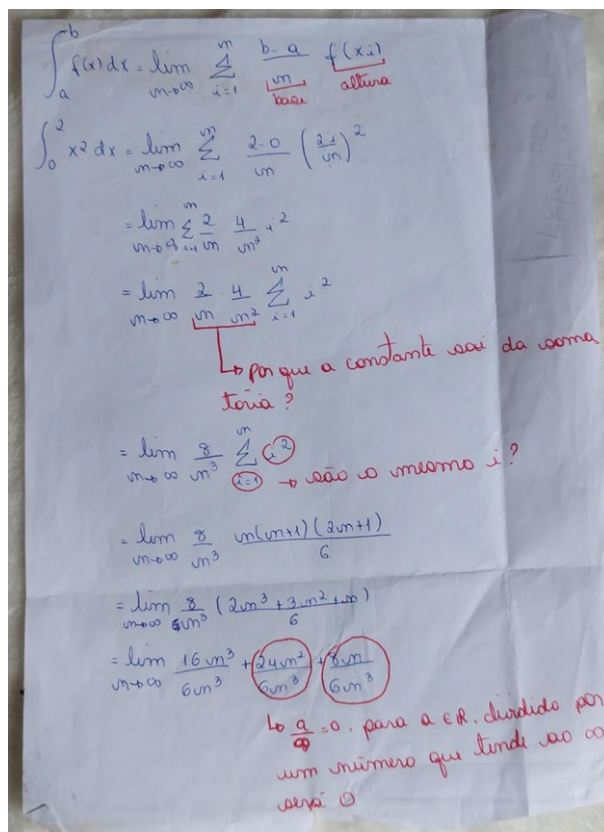 ∫_a^b f(x) dx = lim_{n→∞} Σ_{i=1}^n (b-a)/n f(xi)
base altura
∫_0^2 x2 dx = lim_{n→∞} Σ_{i=1}^n (2-0)/n (2i/n)^2
= lim_{n→∞} Σ_{i=1}^n 2/n 4/n^2 i^2
= lim_{n→∞} 2/n · 4/n^2 Σ_{i=1}^n i^2
↳ por que a constante sai da soma
tória?
= lim_{n→∞} 8/n^3 Σ_{i=1}^n i^2
→ são o mesmo i?
= lim_{n→∞} 8/n^3 n(n+1)(2n+1)/6
= lim_{n→∞} 8/n^3 (2n^3+3n^2+n)/6
= lim_{n→∞} 16n^3/6n^3 + 24n^2/6n^3 + 8n/6n^3
↳ a/∞ = 0, para a ∈ R, dividido por
um número que tende ao ∞
será 0